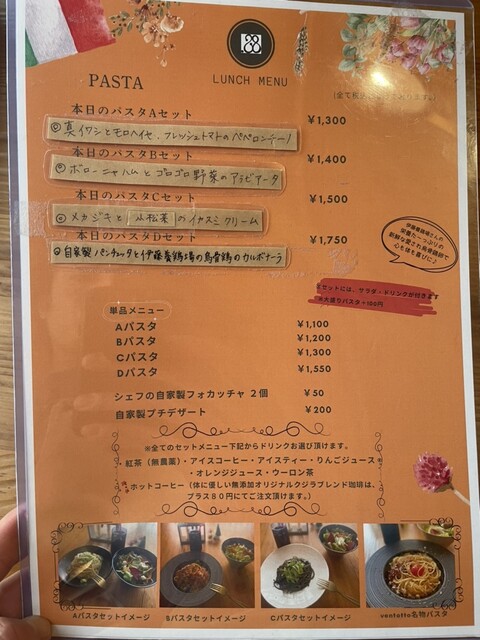 LUNCH MENU
PASTA
本日のパスタAセット
¥1,300
◎真イワシとモロヘイヤ、フレッシュトマトのペペロンチーノ
本日のパスタBセット
¥1,400
◎ボローニャハムとゴロゴロ野菜のアラビアータ
本日のパスタCセット
¥1,500
◎メカジキと小松菜のイカスミクリーム
本日のパスタDセット
¥1,750
◎自家製パンチェッタと伊藤養鶏場の烏骨鶏のカルボナーラ
伊藤養鶏場さんの
栄養たっぷりの
新鮮な愛され烏骨鶏卵で
心も体も喜びに♪
セットには、サラダ・ドリンクが付きます
※大盛りパスタ+100円
単品メニュー
Aパスタ ¥1,100
Bパスタ ¥1,200
Cパスタ ¥1,300
Dパスタ ¥1,550
シェフの自家製フォカッチャ 2個 ¥50
自家製プチデザート ¥200
※全てのセットメニュー下記からドリンクお選び頂けます。
・紅茶(無農薬)・アイスコーヒー・アイスティー・りんごジュース
・オレンジジュース・ウーロン茶
ホットコーヒー(体に優しい無添加オリジナルクジラブレンド珈琲は、
プラス80円にてご注文頂けます。)
Aパスタセットイメージ
Bパスタセットイメージ
Cパスタセットイメージ
ventotto名物パスタ